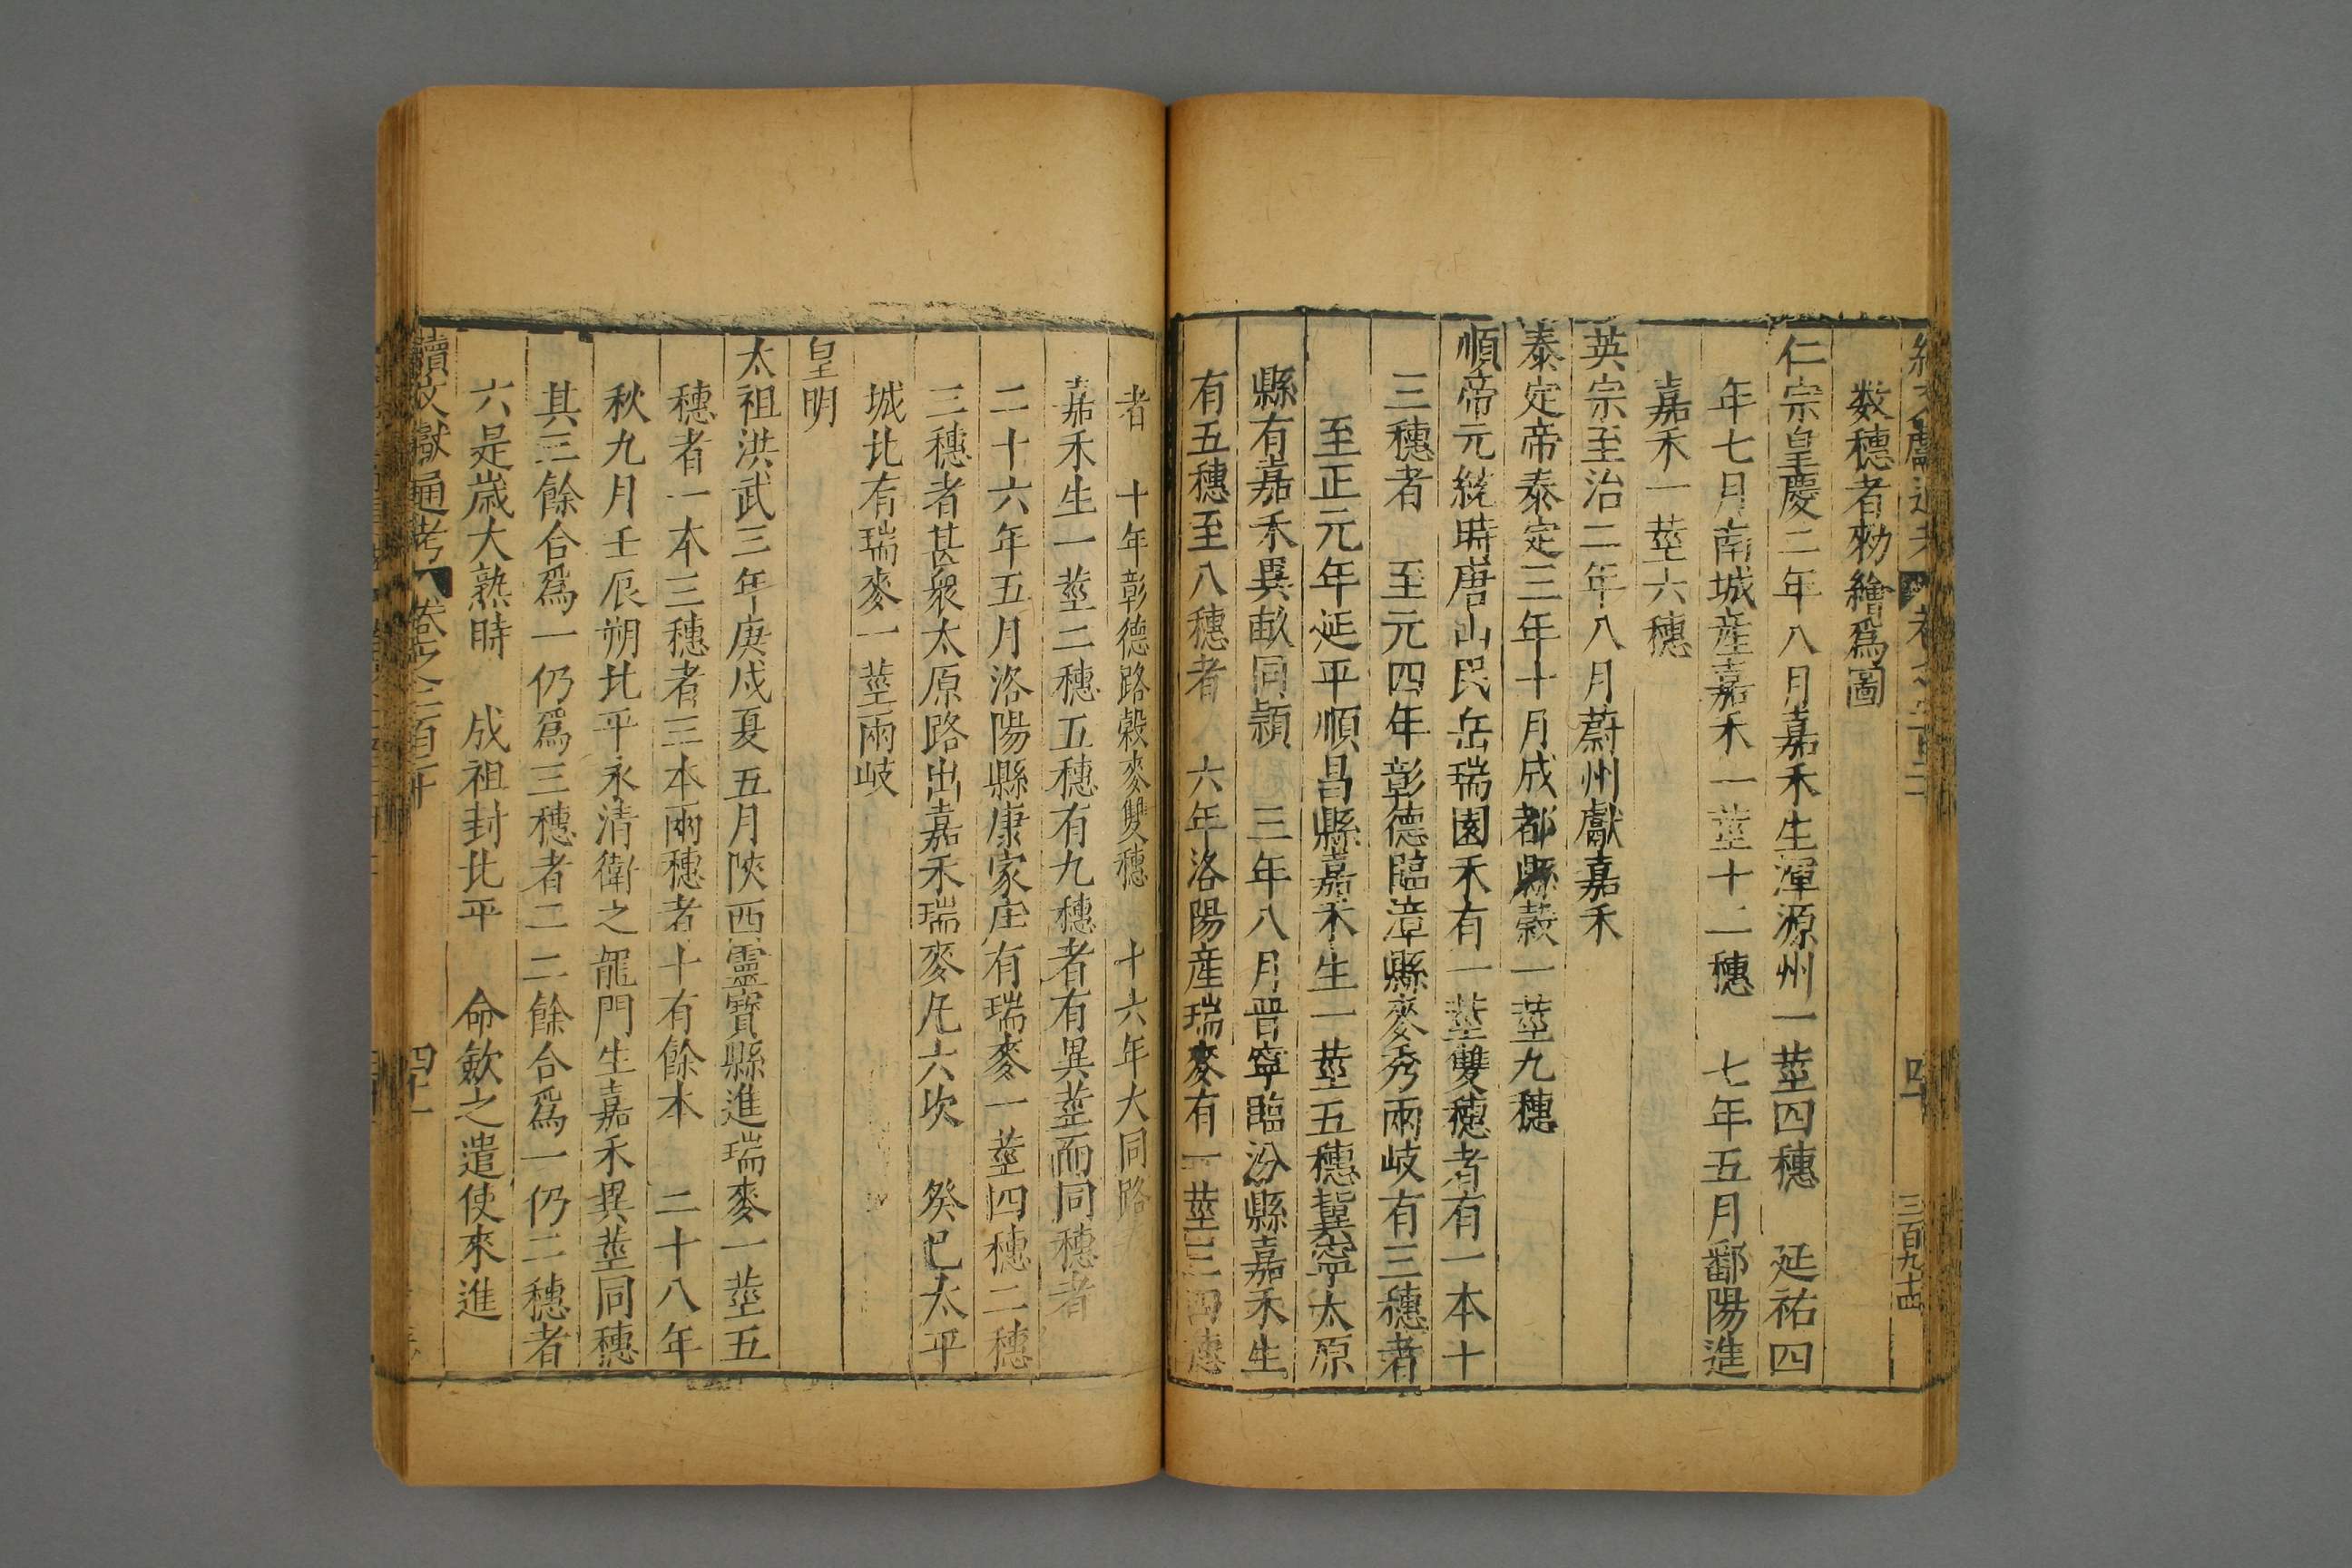 數穗者勑繪爲圖
仁宗皇慶二年八月嘉禾生渾源州一莖四穗　延祐四
年七月南城產嘉禾一莖十二穗　七年五月鄱陽進
嘉禾一莖六穗
英宗至治二年八月蔚州獻嘉禾
泰定帝泰定三年十月成都縣穀一莖九穗
順帝元統時唐山民岳瑞園禾有一莖雙穗者有一本十
三穗者　至元四年彰德臨漳縣麥秀兩岐有三穗者
至正元年延平順昌縣嘉禾生一莖五穗冀寧太原
縣有嘉禾異畝同穎　三年八月晉寧臨汾縣嘉禾生
有五穗至八穗者　六年洛陽產瑞麥有一莖三四穗
者　十年彰德路穀麥雙穗　十六年大同路
嘉禾生一莖二穗五穗有九穗者有異莖而同穗者
二十六年五月洛陽縣康家庄有瑞麥一莖四穗二穗
三穗者甚衆太原路出嘉禾瑞麥凡六次　癸巳太平
城北有瑞麥一莖兩岐
皇明
太祖洪武三年庚戌夏五月陝西靈寶縣進瑞麥一莖五
穗者一本三穗者三本兩穗者十有餘本　二十八年
秋九月壬辰朔北平永清衛之龍門生嘉禾異莖同穗
其三餘合爲一仍爲三穗者二二餘合爲一仍二穗者
六是歲大熟時　成祖封北平　命歛之遣使來進
續文獻通考　卷之二百二十　四十一